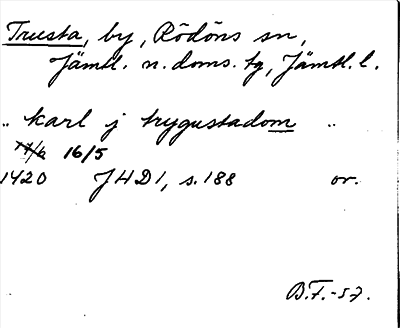 Trusta, by, Rödöns sn,
Jämtl. n. doms. tg, Jämtl. l.
" karl j trygustadom "
16/5
1420 JHD1, s. 188 or.
B.F.-57.